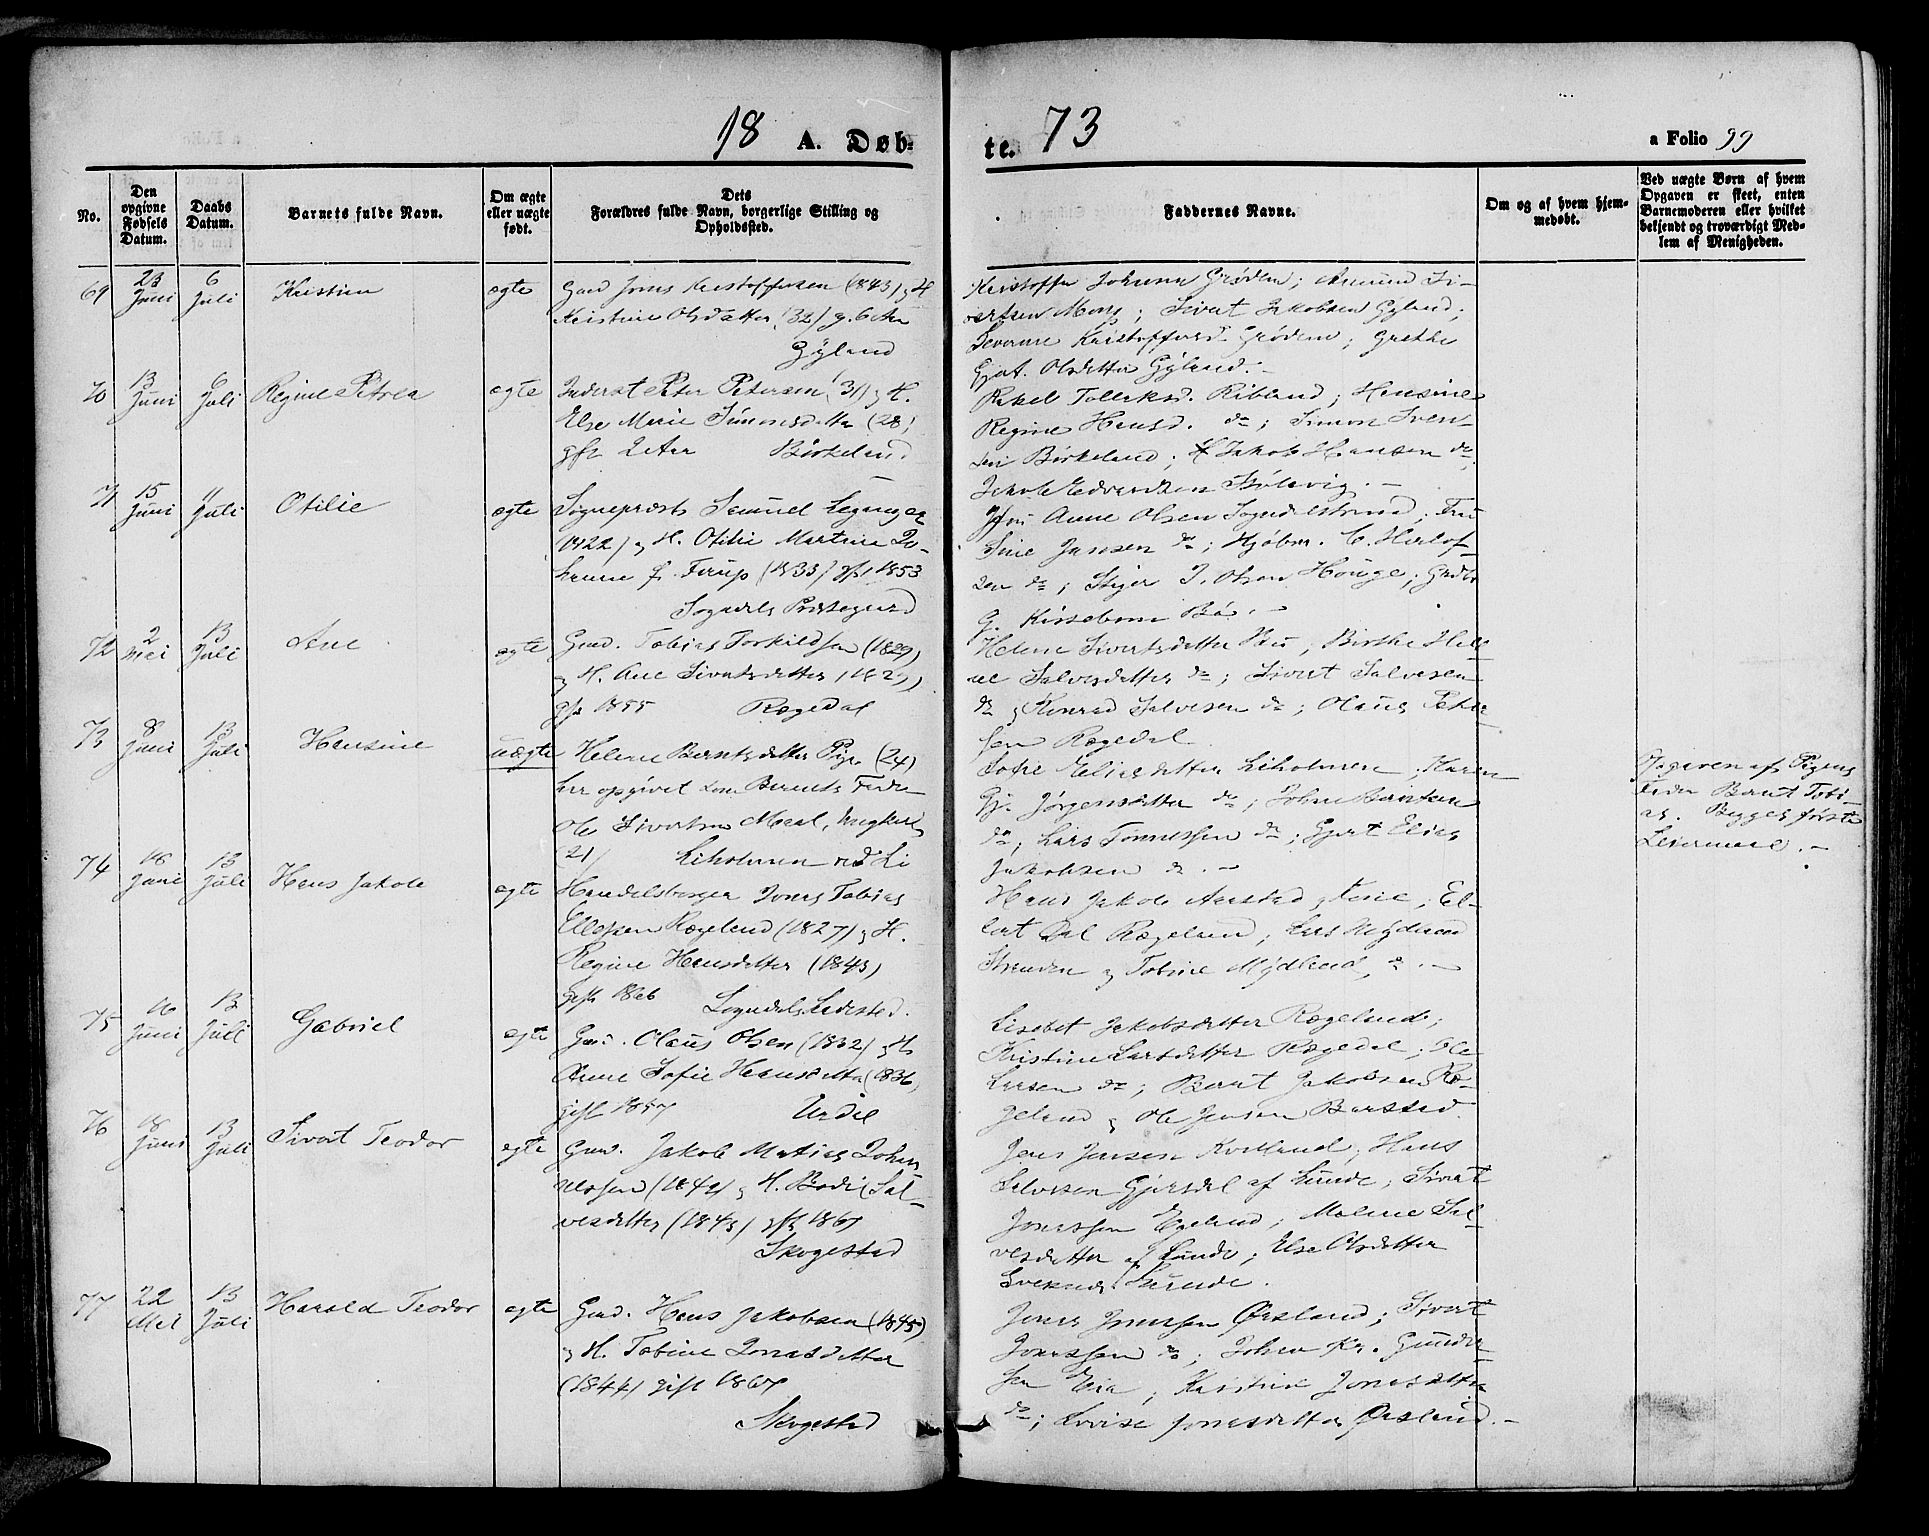 18 A. Døb-
te. 73
a Folio 99
No.
Den opgivne Fødsels Datum.
Daabs Datum.
Barnets fulde Navn.
Om ægte eller uægte født.
Dets Forældres fulde Navn, borgerlige Stilling og Opholdssted.
Faddernes Navne.
Om og af hvem hjemmedøbt.
Ved uægte Børn af hvem Opgaven er skeet, enten Barnemoderen eller hvilket bekjendt og troværdigt Medlem af Menigheden.
69 23 Juni 6 Juli Kristian ægte
Gmd Jonas Kristoffersen (1843) & H
Kristine Olsdatter (32) g. 6 Aar
Gyland
Kristoffer Johnsen Grødem; Amund Si-
vertsen Mong; Sivert Jakobsen Gyland;
Severine Kristoffersd. Grødem; Grethe
Gjert. Olsdatter Gyland.
70 13 Juni 6 Juli Regine Petrea ægte
Inderst Peter Petersen (31) & H.
Else Marie Simonsdatter (28)
gift 2 Aar Birkeland
Rakel Tolleksd. Ribland; Hansine
Regine Hansd. do; Simon Sven-
sen Birkeland; Jakob Hansen do;
Jakob Edvardsen Stølevig.
71 15 Juni 11 Juli Otilie ægte
Sogneprest Samuel
(1822) & H. Otilie Martine Jo-
hanne f. Firup (1833) gft 1853
Sogndals Præstegaard
Jfru Anne Olsen Sogndalstrand; Fru
Sine Jansen do; Kjøbm. C. Herlof-
sen do; Stiger J. Olsen Houge;
G. Kirsebom Bø.
72 2 Mai 13 Juli Ane ægte
Gmd. Tobias Torkildsen (1829)
& H. Ane Sivertsdatter (1829)
gft 1855 Rægedal
Helene Sivertsdatter Bøe; Birthe Hel-
ene Salvesdatter do; Sivert Salvesen
do & Konrad Salvesen do; Olaus Peter-
sen Rægedal.
73 8 Juni 13 Juli Hansine uægte
Helene Berntsdatter Pige (24)
har opgivet som Barnets Fader
Ole Sivertsen Meal, Ungkarl
(21) Liholmen ved Li
Sofie Eliasdatter Liholmen; Karen
Gj. Jørgensdatter do; Johan Berntsen
do; Lars Tønnessen do; Gjert Elias
Jakobsen do.
Opgaven af Pigens
Fader Bernt Tobi-
as. Begges første
Leiermaal.
74 18 Juni 13 Juli Hans Jakob ægte
Handelsborger Jonas Tobias
Ellefsen Rægeland (1827) & H.
Regine Hansdatter (1843)
gift 1866 Sogndals Ladested.
Hans Jakob Aarstad; El-
lert Rægeland; Lars Mydland
Stranden & Tobine Mydland, do.
75 16 Juni 13 Juli Gabriel ægte
Gmd. Olaus Olsen (1832) & H
Anne Sofie Hansdatter (1836)
gift 1857 Urdal
Lisebet Jakobsdatter Rægeland;
Kristine Larsdatter Rægedal; Ole
Larsen do; Bernt Jakobsen Ræ-
geland & Ole Jensen Barstad.
76 18 Juni 13 Juli Sivert Teodor ægte
Gmd. Jakob Matias Johan-
nessen (1842) & H. Bodil Sal-
vesdatter (1843) gft 1867
Skogestad
Jens Jensen Kvelland; Hans
Salvesen Gjersdal af Lunde; Sivert
Jonassen Egeland; Malene Sal-
vesdatter af Lunde; Else Olsdatter
Lunde.
77 22 Mai 13 Juli Harald Teodor ægte
Gmd. Hans Jakobsen (1845)
& H. Tobine Jonasdatter
(1844) gift 1867
Skogestad
Jonas Jonassen Ørsland; Sivert
Jonassen do; Johan Kr. Gunder-
sen Eia; Kristine Jonasdatter
do; Lovise Jonasdatter Ørsland.